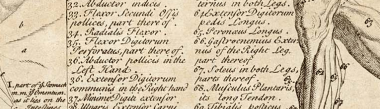 32. Abductor indicis.
33. Flexor Secundi Ossis
pollices, part thereof.
34. Radialis Flexor.
35. Flexor Digitorum
Perforatus, part thereof.
36. Abductor pollices in the
Left Hand.
36. Extensor Digitorum
communis in the Right hand
37. Minimi Digiti extensor
ternius in both Legs.
64. Extensor Digitorum
pedis Longus.
65. Peroneus Longus.
66. Gastrocnemius Exter
nus of the Right Leg.
part thereof.
67. Soleus in both Legs,
parts thereof.
68. Musculus Plantaris,
its long Tendon.
1. part of Stomach
as it lies on the